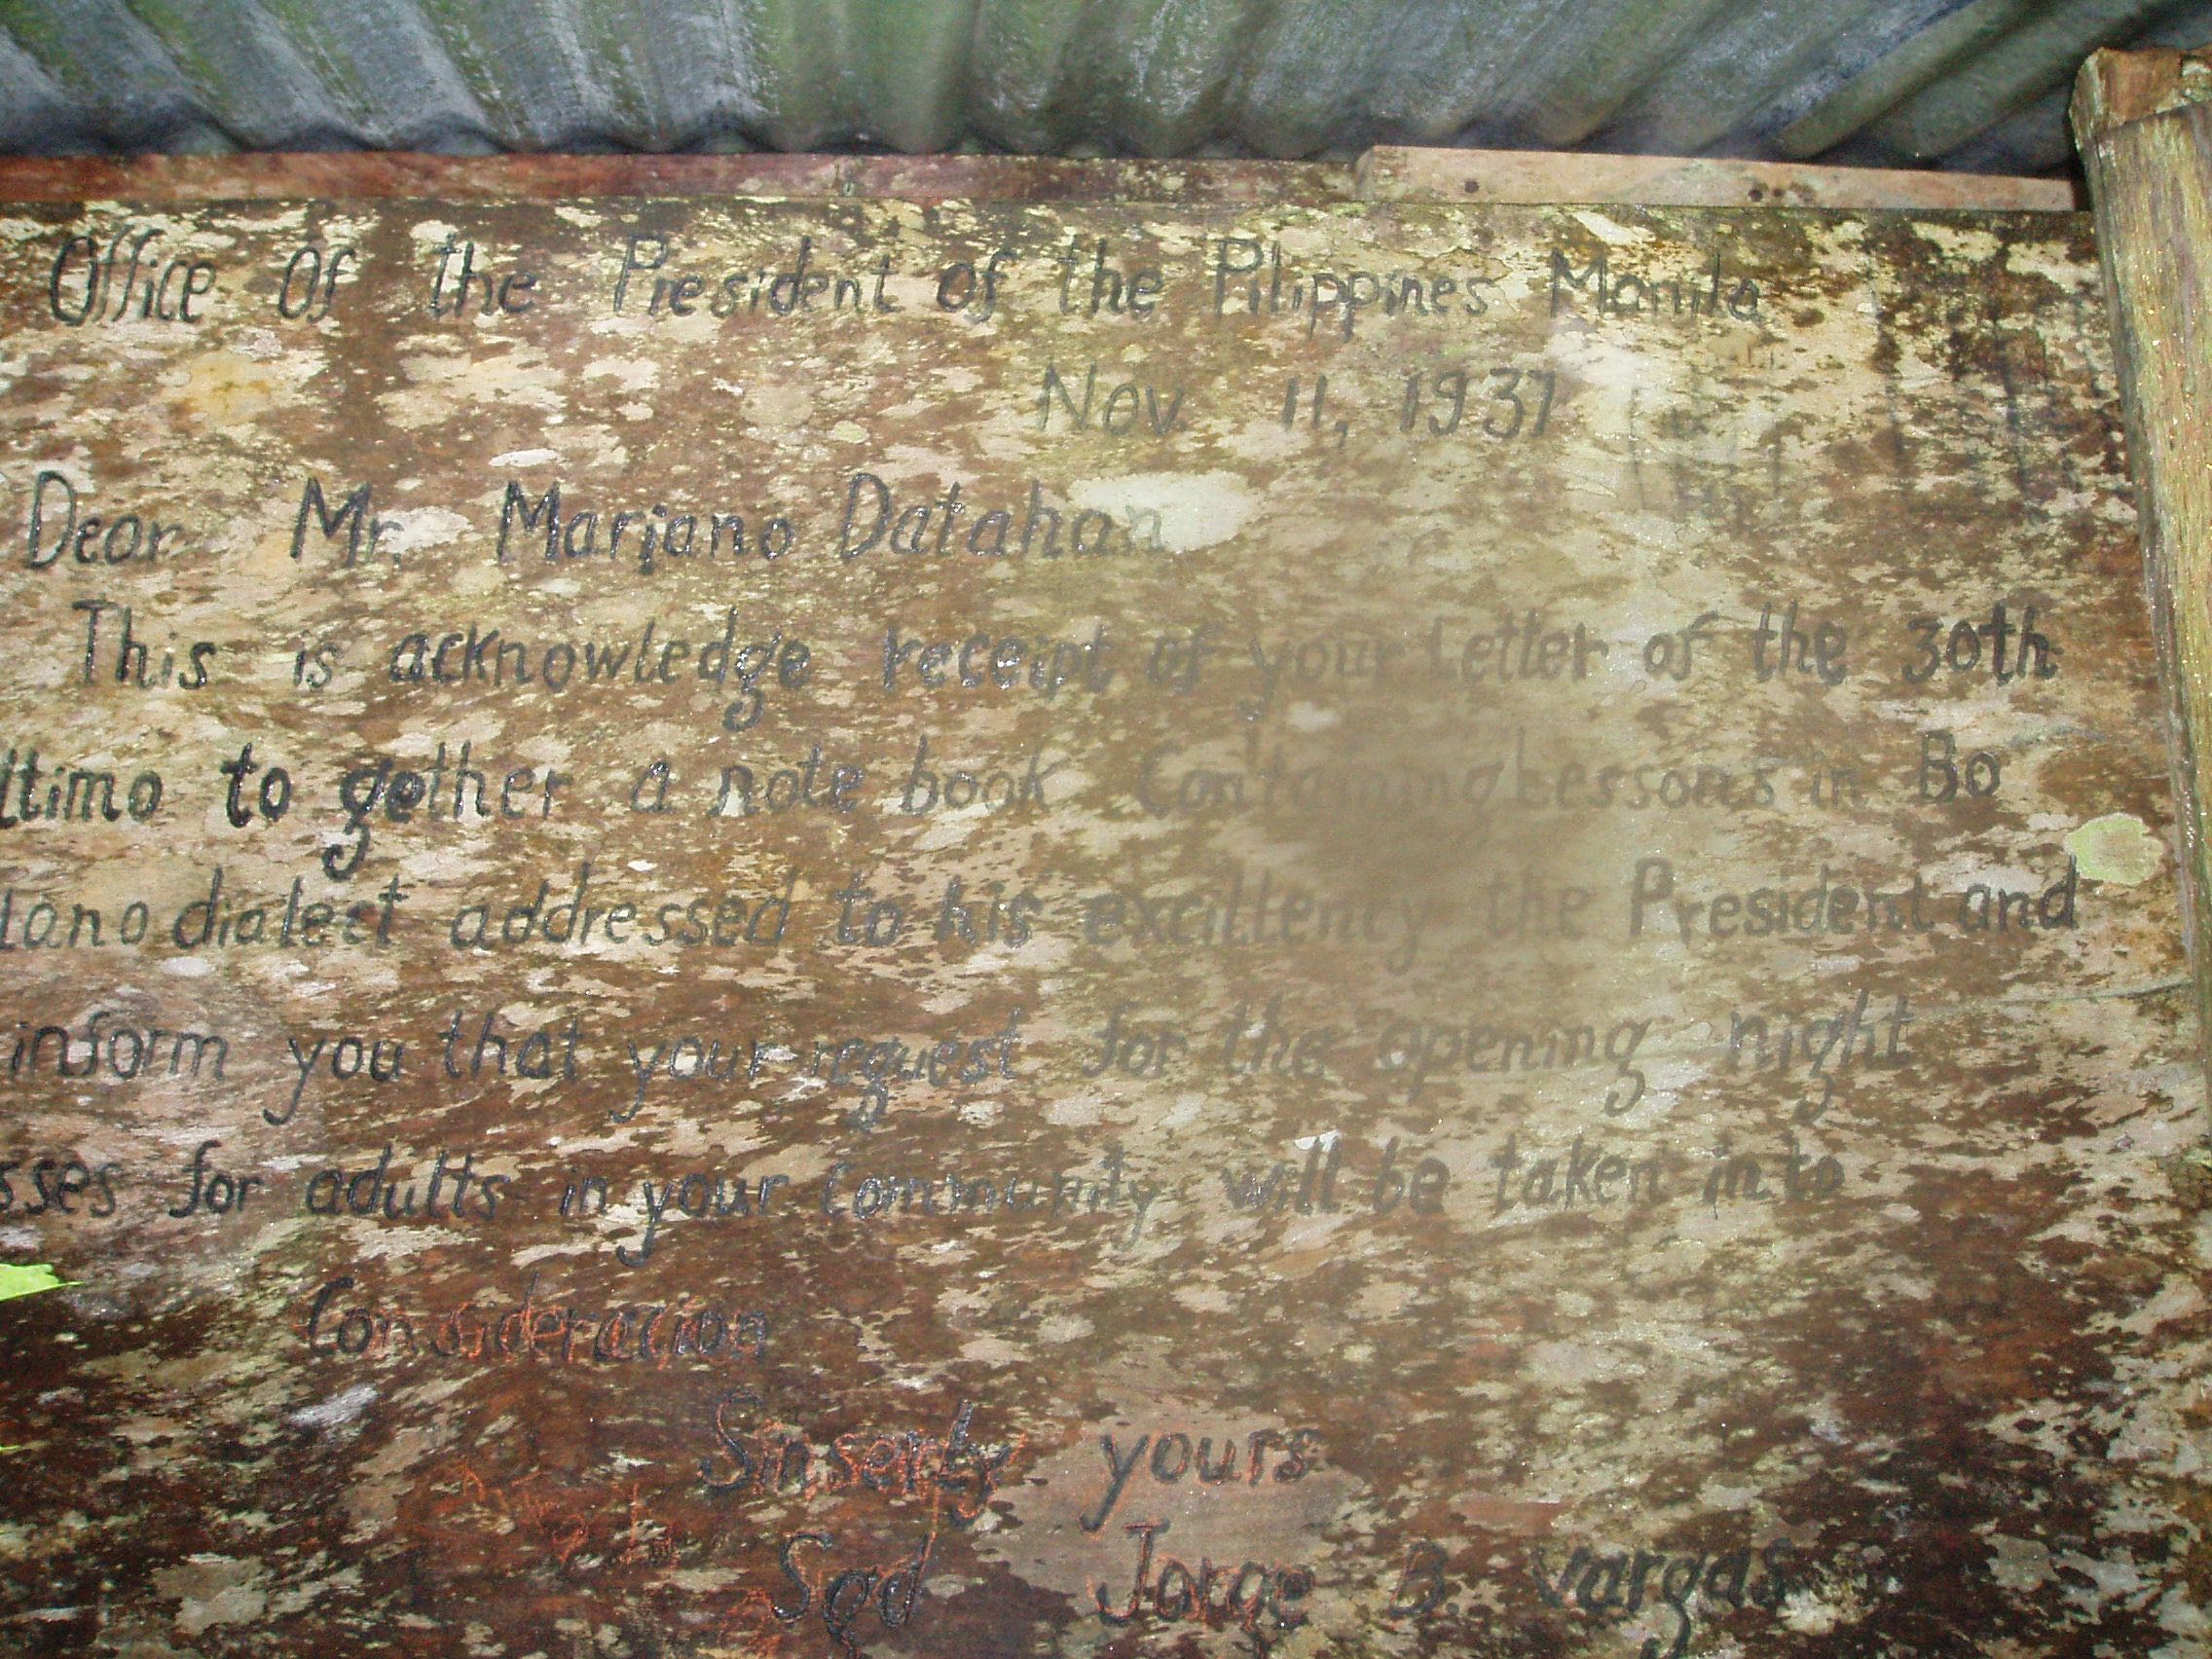 Office Of the President of the Pilippines Manila
Nov. 11, 1937
Dear Mr. Mariano Datahan
This is acknowledge receipt of your letter of the 30th
ltimo to gether a note book Containing Lessons in Bo
lano dialect addressed to his excillency the President and
inform you that your request for the opening night
sses for adults in your Community will be taken in to
Consideracion
Sinserly yours
Sgd Jorge B. Vargas